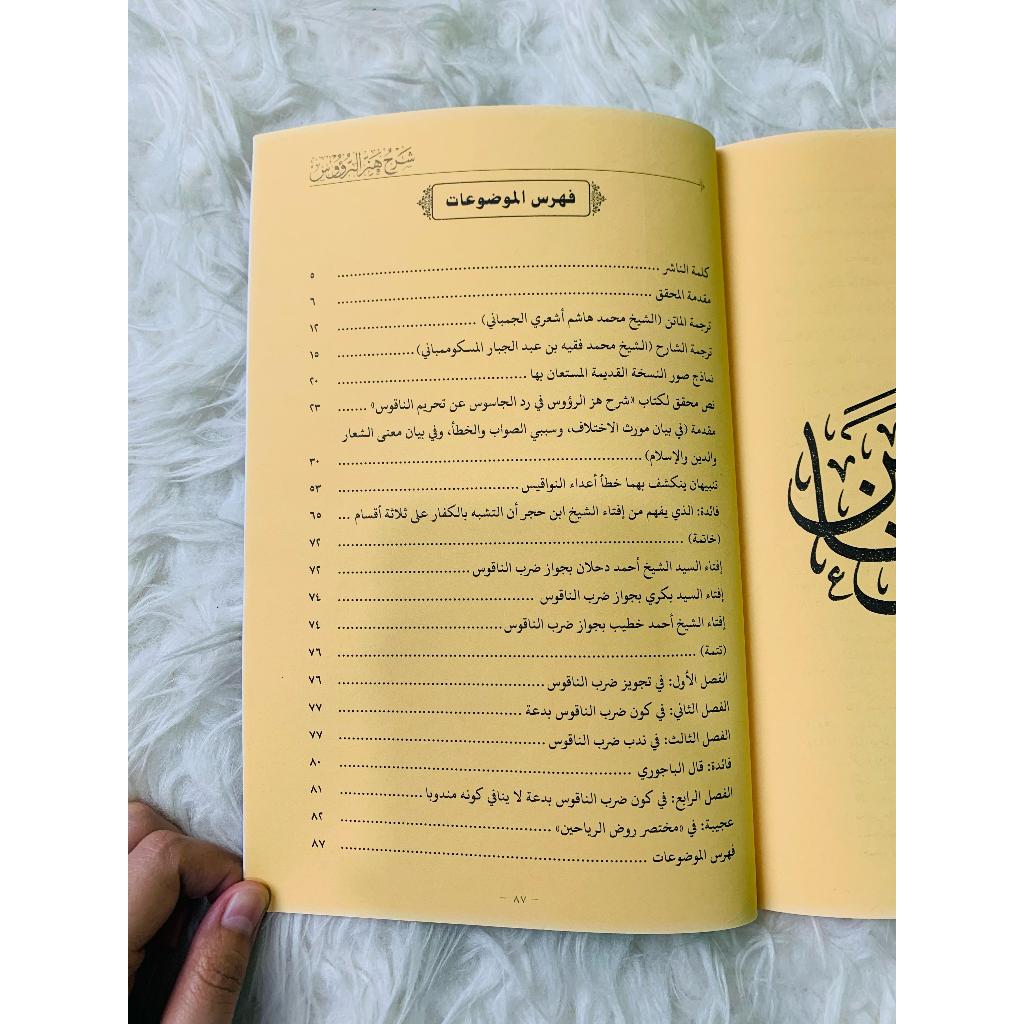 شرح هز الرؤوس
فهرس الموضوعات
كلمة الناشر ..... ٥
مقدمة المحقق ..... ٦
ترجمة الماتن (الشيخ محمد هاشم أشعري الجمباني) ..... ١٢
ترجمة الشارح (الشيخ محمد فقيه بن عبد الجبار المسكوممباني) ..... ١٥
نماذج صور النسخة القديمة المستعان بها ..... ٢٠
نص محقق لكتاب «شرح هز الرؤوس في رد الجاسوس عن تحريم الناقوس» ..... ٢٣
مقدمة (في بيان مورث الاختلاف، وسببي الصواب والخطأ، وفي بيان معنى الشعار
والدين والإسلام) ..... ٣٠
تنبيهان ينكشف بهما خطأ أعداء النواقيس ..... ٥٣
فائدة: الذي يفهم من إفتاء الشيخ ابن حجر أن التشبه بالكفار على ثلاثة أقسام ... ٦٥
(خاتمة) ..... ٧٢
إفتاء السيد الشيخ أحمد دحلان بجواز ضرب الناقوس ..... ٧٢
إفتاء السيد بكري بجواز ضرب الناقوس ..... ٧٤
إفتاء الشيخ أحمد خطيب بجواز ضرب الناقوس ..... ٧٤
(تتمة) ..... ٧٦
الفصل الأول: في تجويز ضرب الناقوس ..... ٧٦
الفصل الثاني: في كون ضرب الناقوس بدعة ..... ٧٧
الفصل الثالث: في ندب ضرب الناقوس ..... ٧٧
فائدة: قال الباجوري ..... ٨٠
الفصل الرابع: في كون ضرب الناقوس بدعة لا ينافي كونه مندوبا ..... ٨١
عجيبة: في «مختصر روض الرياحين» ..... ٨٢
فهرس الموضوعات ..... ٨٧
- ٨٧ -